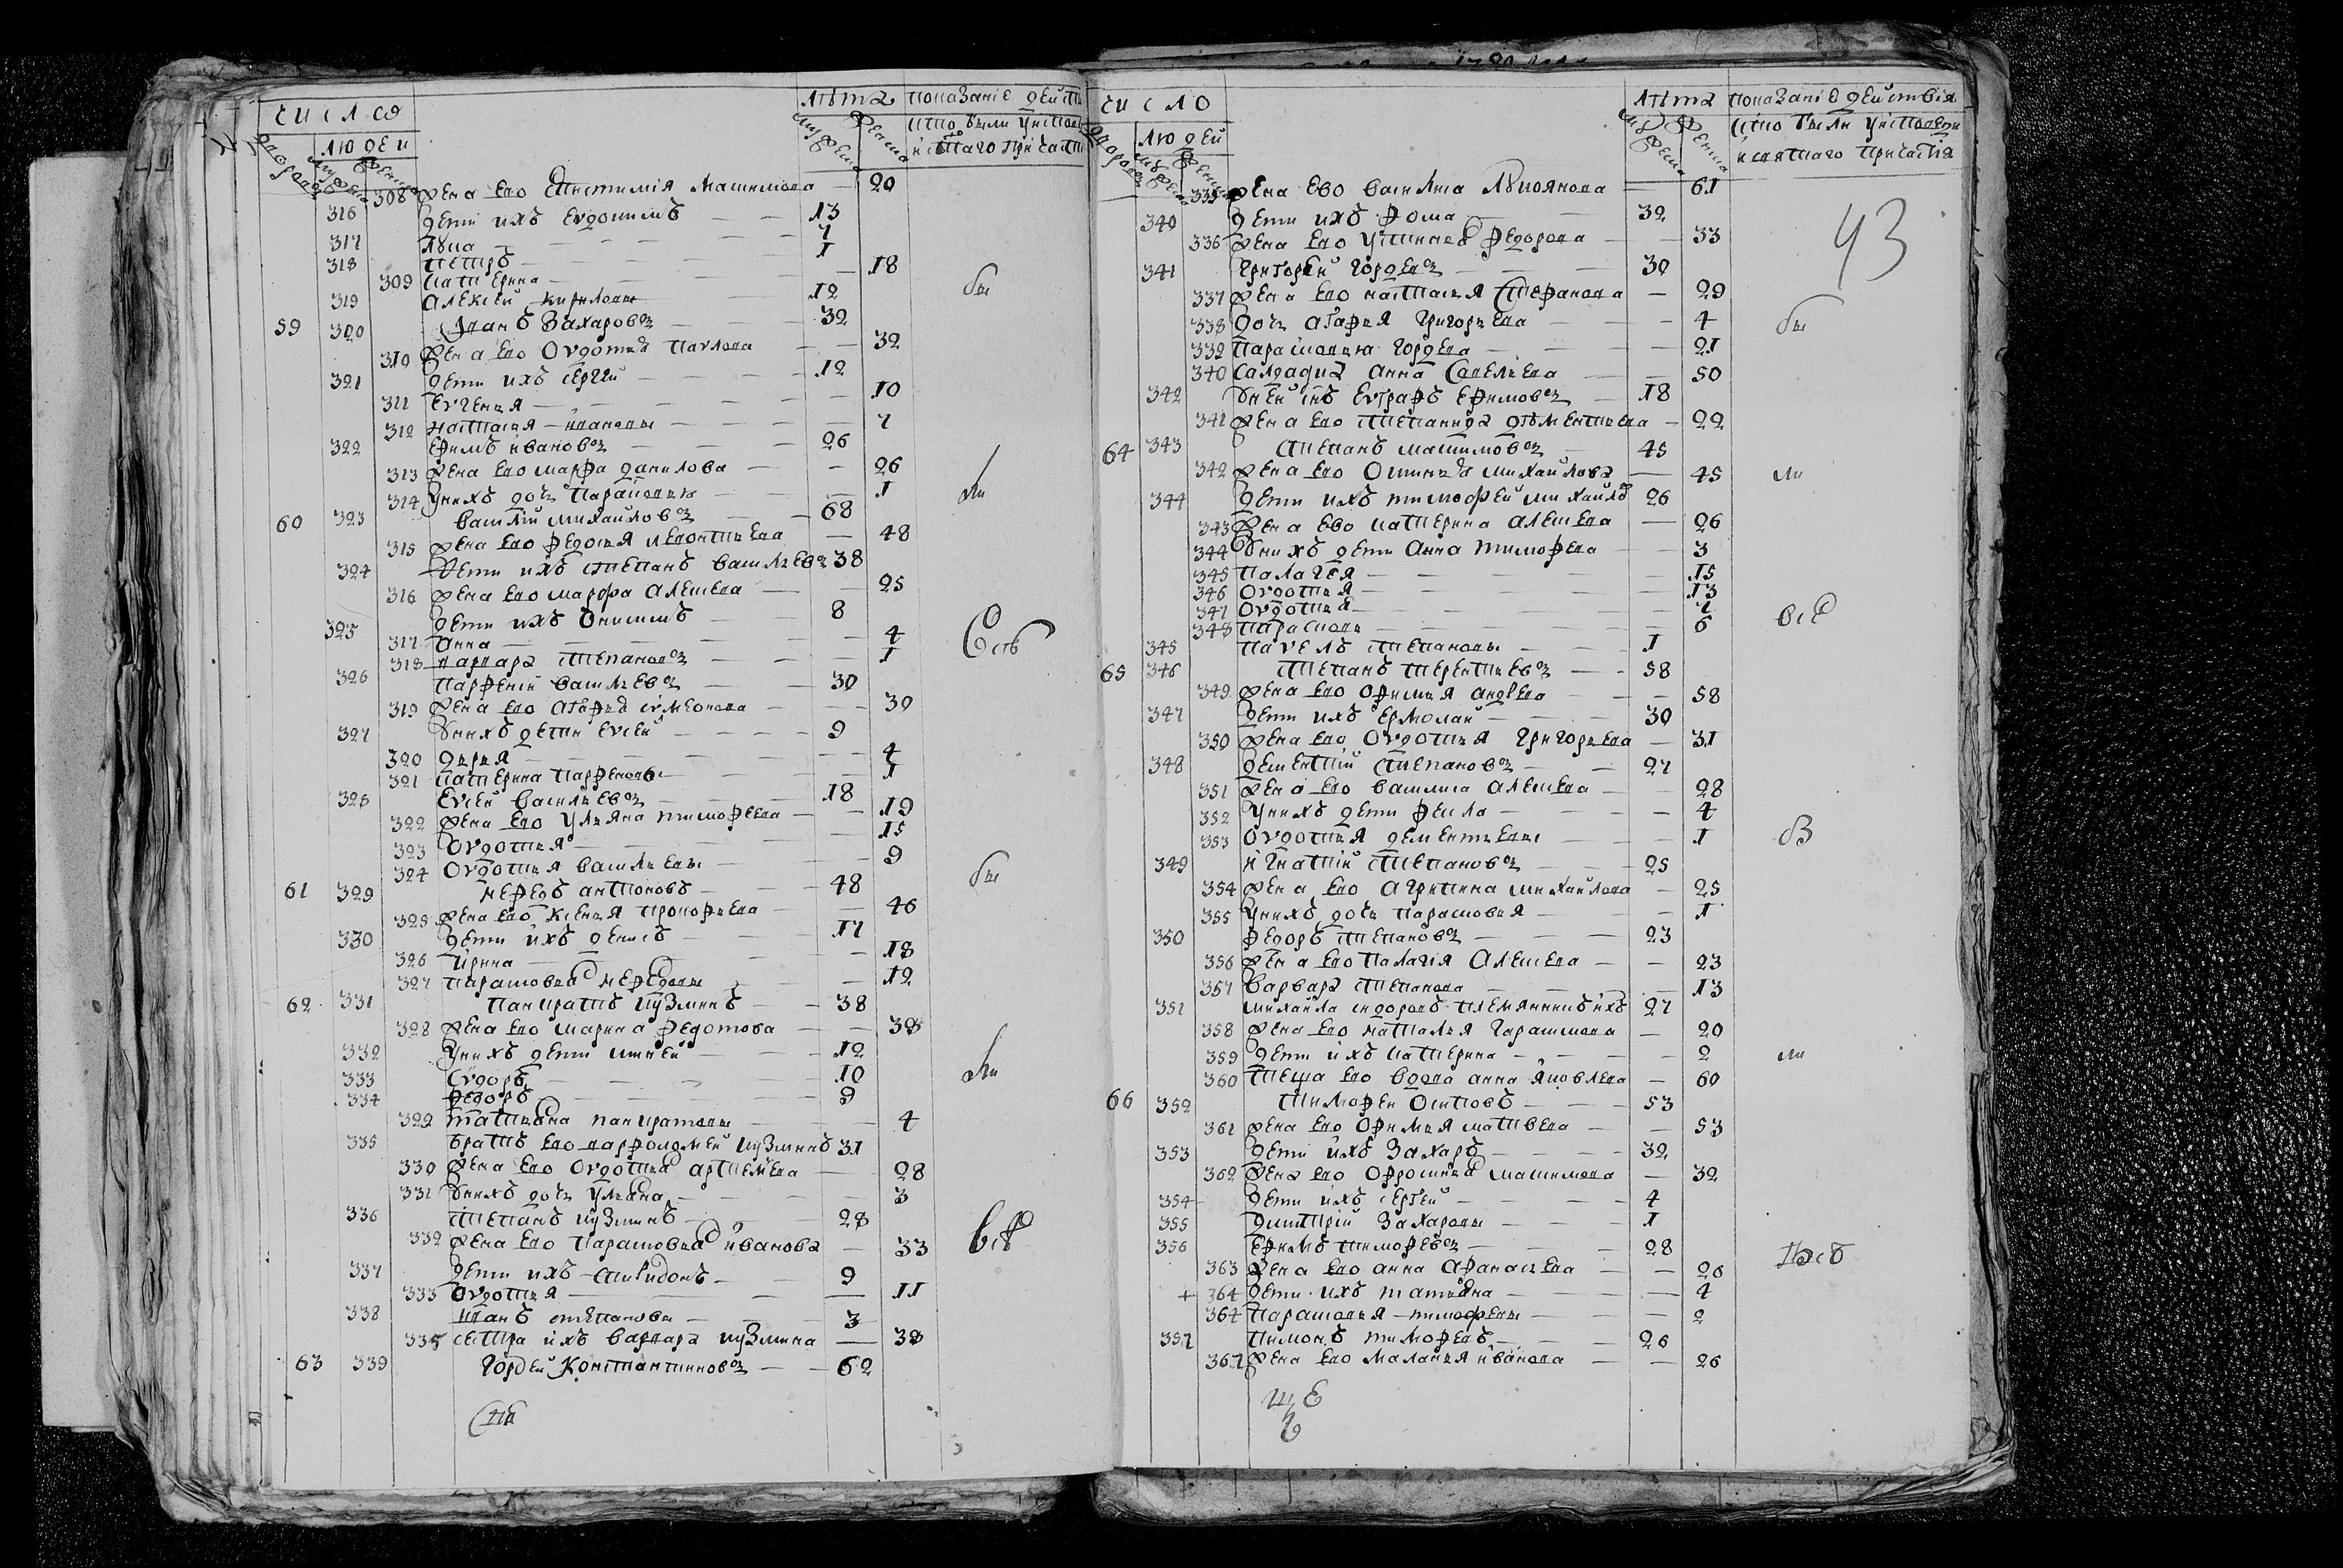 число
людей
лѣта
показаниѣ дейст
кто были уиспове
и с҃таго причасти
308 жена ево Епистимия Максимова — 20
316 дети ихъ Евдокимъ — 13
317 Лука — 7
318 петръ — 1
309 катерина — 18
319 алексей кириловы — 12
59 320 Иванъ Захаровъ — 32
310 жена ево Овдотья Павлова — 32
321 дети ихъ сергей — 12
311 Евгения — 10
312 настасия ивановы — 7
322 Ефимъ ивановъ — 26
313 жена ево марфа данилова — 26
314 уних дочь Парасковья — 1
60 323 василий михайловъ — 68
315 жена ево федосия леонтиева — 48
324 дети ихъ степанъ васильевъ 38
316 жена ево марфа алексева — 25
325 дети ихъ Онисимъ — 8
317 Анна — 4
318 варвара степановы — 1
326 парфений васильевъ — 30
319 жена ево агафья симеонова — 30
327 унихъ дети Евсей — 9
320 дарья — 4
321 катерина парфеновы — 1
328 Евсей васильевъ — 18
322 жена ево ульяна тимофеева — 19
323 Овдотия — 15
324 Овдотия васильевы — 9
61 329 нефедъ антоновъ — 48
325 жена ево ксения прокофьева — 46
330 дети ихъ денисъ — 17
326 ирина — 18
327 парасковья нефедовы — 12
62 331 панкратъ кузминъ — 38
328 жена ево марина федотова — 38
332 унихъ дети михей — 12
333 сидоръ — 10
334 федоръ — 9
329 татьяна панкратовы — 4
335 братъ ево варфоломей кузминъ 31
330 жена ево Овдотья артемева — 28
331 унихъ дочь ульяна — 3
336 степанъ кузминъ — 28
332 жена ево парасковья иванова — 33
337 дети ихъ спиридонъ — 9
333 Овдотия — 11
338 иванъ степановы — 3
335 сестра ихъ варвара кузмина — 38
63 339 гордей Константиновъ — 62
бы
ли
Есть
бы
ли
всѣ
число
людей
лѣта
показание действия
кто были уисповеди
и святаго причастия
43
335 жена ево василиса Лукоянова — 61
340 дети ихъ фома — 32
336 жена ево устинья федорова — 33
341 григорей гордевъ — 30
337 жена ево настасия степанова — 29
338 дочь агафия григорьева — 4
339 парасковья гордева — 21
340 салдадка анна савельева — 50
342 у ней снъ Евграфъ Ефимовъ — 18
341 жена ево степанида дѣментиева — 22
64 343 степанъ максимовъ — 45
342 жена ево Оксинья михайлова — 45
344 дети ихъ тимофей михайлъ 26
343 жена ево катерина алексева — 26
344 унихъ дети анна тимофева — 3
345 палагея — 15
346 Овдотия — 13
347 Овдотия — 7
348 парасковья — 6
345 павелъ степановы — 1
65 346 степанъ терентиевъ — 58
349 жена ево Офимия андрева — 58
347 дети ихъ Ермолай — 30
350 жена ево Овдотия григорьева — 31
348 дементий степановъ — 27
351 жена ево василиса алексева — 28
352 унихъ дети фекла — 4
353 Овдотия дементьевы — 1
349 игнатий степановъ — 25
354 жена ево агрипина михайлова — 25
355 унихъ дочь парасковия — 1
350 федоръ степановъ — 23
356 жена ево палагия алексева — 23
357 варвара степанова — 13
351 михайла сидоровъ племянникъ ихъ 27
358 жена ево наталия гарасимова — 20
359 дети ихъ катерина — 2
360 теща ево вдова анна яковлева — 60
66 352 тимофей осиповъ — 53
361 жена ево Офимия матвева — 53
353 дети ихъ Захаръ — 32
362 жена ево Офросинья максимова — 32
354 дети ихъ сергей — 4
355 димитрий Захаровы — 1
356 Ефимъ тимофевъ — 28
363 жена ево анна афанасьева — 26
364 дети ихъ татьяна — 4
364 парасковия тимофевы — 2
357 пимонъ тимофевъ — 26
367 жена ево маланья иванова — 26
бы
ли
все
В
ли